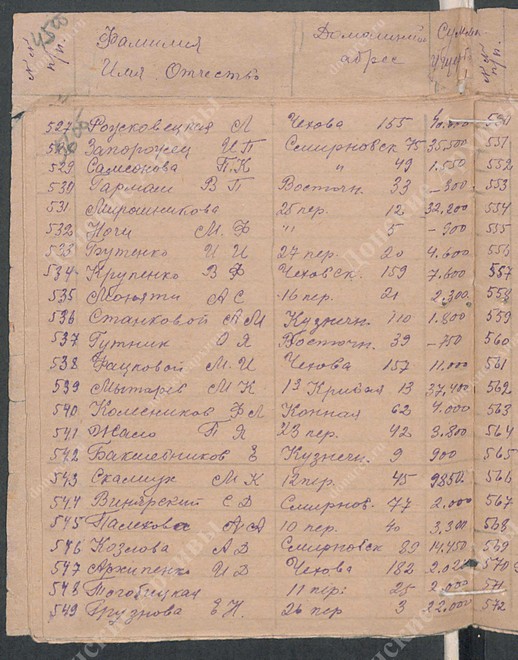 №№ п/п. Фамилия Имя Отчество Домашний адрес Сумма ущерб №№ п/п.
4500
527 Л Чехова 155 550
Запорожец И П Смирновск 75 35500 551
529 Самсонова П.К " 49 1.550 552
530 Гармаш В П Восточн. 33 -800 553
531 Мирошникова 25 пер. 12 32,200 554
532 Ночи М. Ф " 5 -900 555
533 Бутенко И И 27 пер. 20 4.600 556
534 Крупенко В Ф Чеховск. 159 7.600 557
535 А С 16 пер. 21 2.300 558
536 Станковой А М Кузнечн. 110 1.800 559
537 Гутник О Я Восточн. 39 560
538 Фацковой М. И Чехова 157 11.000 561
539 Мытарев М К 19 Кривая 13 37,400 562
540 Колесников Ф Л Конная 62 4.000 563
541 П Я 23 пер. 42 3.800 564
542 Е Кузнечн. 9 900 565
543 М К 12 пер. 45 9850 566
544 Винярский Е Д Смирнов. 77 2.000 567
545 А А 10 пер. 40 3,300 568
546 Козлова А В Смирновск 89 14.450 569
547 Архипенко И Д Чехова 182 570
548 11 пер. 25 2.000 571
549 Грузнова Е Н. 26 пер 3 22.000 572
Донские архивы